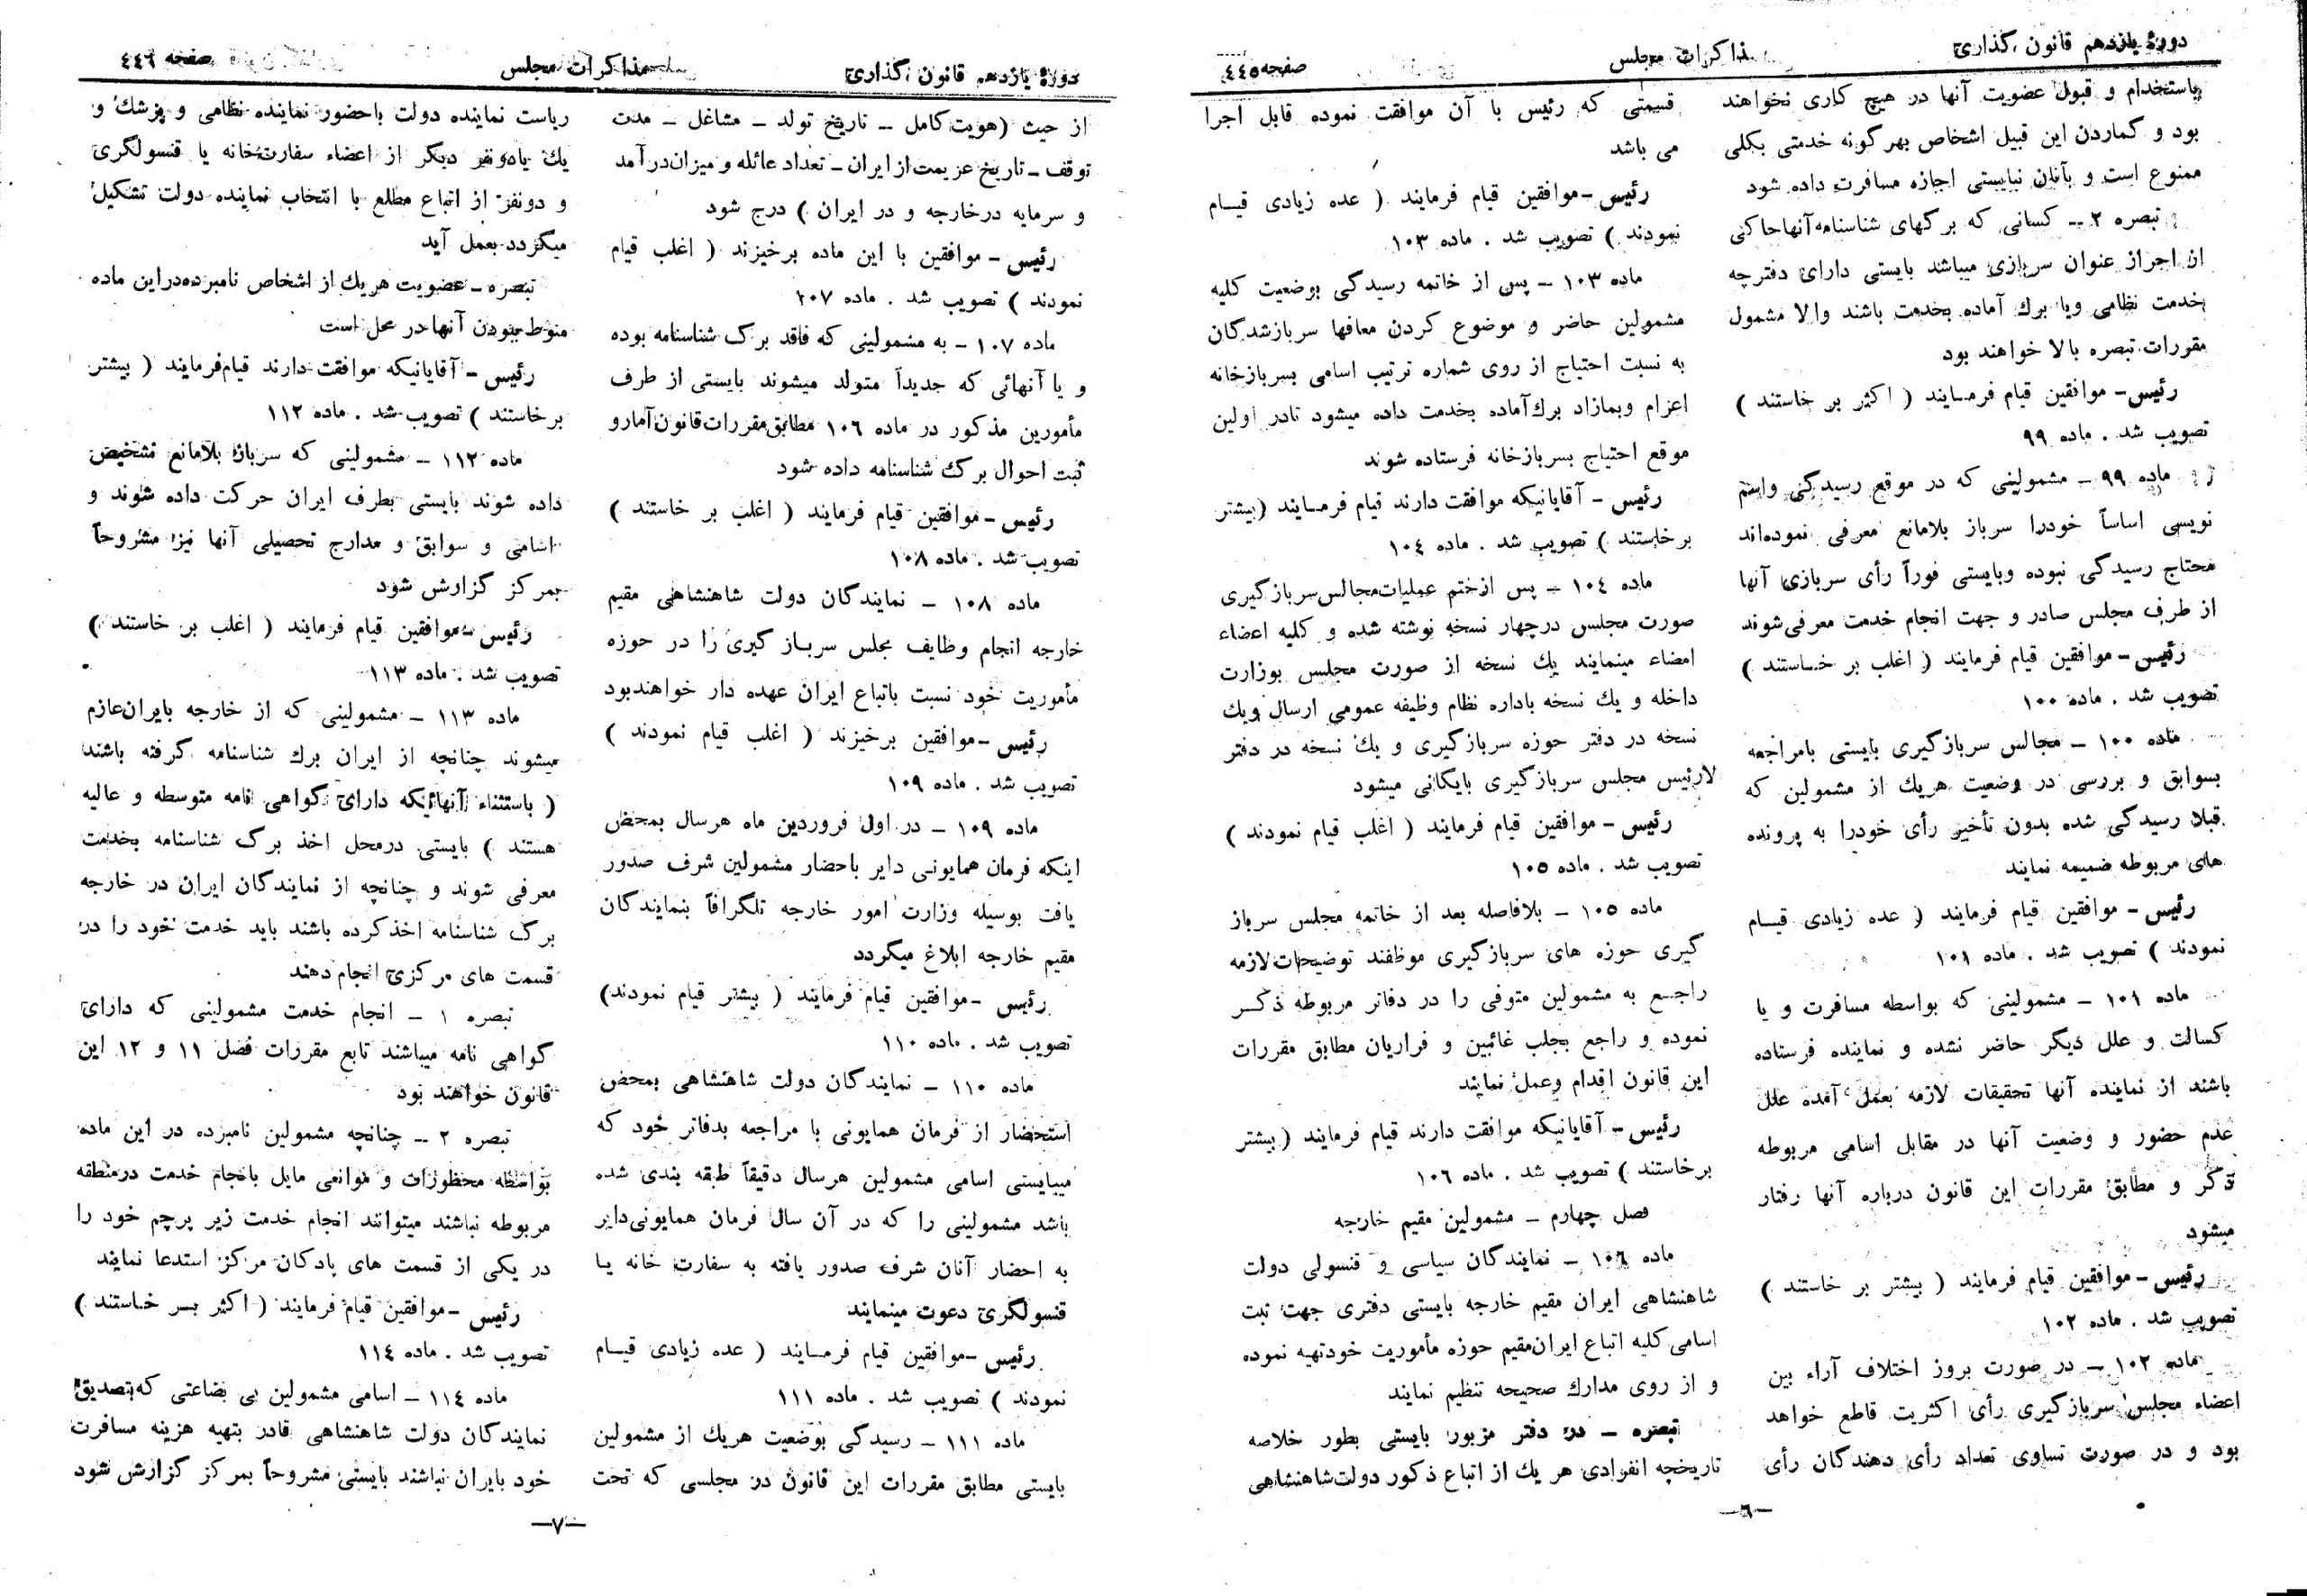 دورهٔ یازدهم قانون گذاری
مذاکرات مجلس
صفحه ٤٤٥
باستخدام و قبول عضویت آنها در هیچ کاری نخواهند
بود و گماردن این قبیل اشخاص بهر گونه خدمتی بکلی
ممنوع است و بآنان نبایستی اجازه مسافرت داده شود
تبصره ۲ ــ کسانی که برگهای شناسنامه آنها حاکی
از احراز عنوان سربازی میباشد بایستی دارای دفترچه
خدمت نظامی ویا برك آماده بخدمت باشند والا مشمول
مقررات تبصره بالا خواهند بود
رئیس ــ موافقین قیام فرمـایند ( اکثر بر خاستند )
تصویب شد . ماده ۹۹
ماده ۹۹ ــ مشمولینی که در موقع رسیدگی واسم
نویسی اساساً خودرا سرباز بلامانع معرفی نموده‌اند
محتاج رسیدگی نبوده وبایستی فوراً رأی سربازی آنها
از طرف مجلس صادر و جهت انجام خدمت معرفی شوند
رئیس ــ موافقین قیام فرمایند ( اغلب بر خـاستند )
تصویب شد . ماده ۱۰۰
ماده ۱۰۰ ــ مجالس سربازگیری بایستی بامراجعه
بسوابق و بررسی در وضعیت هریك از مشمولین که
قبلا رسیدگی شده بدون تأخیر رأی خودرا به پرونده
های مربوطه ضمیمه نمایند
رئیس ــ موافقین قیام فرمایند ( عده زیادی قیـام
نمودند ) تصویب شد . ماده ۱۰۱
ماده ۱۰۱ ــ مشمولینی که بواسطه مسافرت و یا
کسالت و علل دیگر حاضر نشده و نماینده فرستاده
باشند از نماینده آنها تحقیقات لازمه بعمل آمده علل
عدم حضور و وضعیت آنها در مقابل اسامی مربوطه
ذکر و مطابق مقررات این قانون درباره آنها رفتار
میشود
رئیس ــ موافقین قیام فرمایند ( بیشتر بر خاستند )
تصویب شد . ماده ۱۰۲
ماده ۱۰۲ ــ در صورت بروز اختلاف آراء بین
اعضاء مجلس سربازگیری رأی اکثریت قاطع خواهد
بود و در صورت تساوی تعداد رأی دهندگان رأی
قسمتی که رئیس با آن موافقت نموده قابل اجرا
می باشد
رئیس ــ موافقین قیام فرمایند ( عده زیادی قیـام
نمودند ) تصویب شد . ماده ۱۰۳
ماده ۱۰۳ ــ پس از خاتمه رسیدگی بوضعیت کلیه
مشمولین حاضر و موضوع کردن معافها سربازشدگان
به نسبت احتیاج از روی شماره ترتیب اسامی بسربازخانه
اعزام وبمازاد برك آماده بخدمت داده میشود تادر اولین
موقع احتیاج بسربازخانه فرستاده شوند
رئیس ــ آقایانیکه موافقت دارند قیام فرمـایند (بیشتر
برخاستند ) تصویب شد . ماده ۱۰٤
ماده ۱۰٤ ــ پس ازختم عملیات مجالس سربازگیری
صورت مجلس درچهار نسخه نوشته شده و کلیه اعضاء
امضاء مینمایند یك نسخه از صورت مجلس بوزارت
داخله و یك نسخه باداره نظام وظیفه عمومی ارسال ویك
نسخه در دفتر حوزه سربازگیری و یك نسخه در دفتر
رئیس مجلس سربازگیری بایگانی میشود
رئیس ــ موافقین قیام فرمایند ( اغلب قیام نمودند )
تصویب شد . ماده ۱۰٥
ماده ۱۰٥ ــ بلافاصله بعد از خاتمه مجلس سرباز
گیری حوزه های سربازگیری موظفند توضیحات لازمه
راجـع به مشمولین متوفی را در دفاتر مربوطه ذکـر
نموده و راجع بجلب غائبین و فراریان مطابق مقررات
این قانون اقدام وعمل نمایند
رئیس ــ آقایانیکه موافقت دارند قیام فرمایند (بیشتر
برخاستند ) تصویب شد . ماده ۱۰٦
فصل چهارم ــ مشمولین مقیم خارجه
ماده ۱۰٦ ــ نمایندگان سیاسی و قنسولی دولت
شاهنشاهی ایران مقیم خارجه بایستی دفتری جهت ثبت
اسامی کلیه اتباع ایران مقیم حوزه مأموریت خودتهیه نموده
و از روی مدارك صحیحه تنظیم نمایند
تبصره ــ در دفتر مزبور بایستی بطور خلاصه
تاریخچه انفرادی هر یك از اتباع ذکور دولت شاهنشاهی
ــ٦ــ
دورهٔ یازدهم قانون گذاری
مذاکرات مجلس
صفحه ٤٤٦
از حیث (هویت کامل ــ تاریخ تولد ــ مشاغل ــ مدت
توقف ــ تاریخ عزیمت از ایران ــ تعداد عائله و میزان درآمد
و سرمایه درخارجه و در ایران ) درج شود
رئیس ــ موافقین با این ماده برخیزند ( اغلب قیام
نمودند ) تصویب شد . ماده ۱۰۷
ماده ۱۰۷ ــ به مشمولینی که فاقد برگ شناسنامه بوده
و یا آنهائی که جدیداً متولد میشوند بایستی از طرف
مأمورین مذکور در ماده ۱۰٦ مطابق مقررات قانون آمار و
ثبت احوال برگ شناسنامه داده شود
رئیس ــ موافقین قیام فرمایند ( اغلب بر خاستند )
تصویب شد . ماده ۱۰۸
ماده ۱۰۸ ــ نمایندگان دولت شاهنشاهی مقیم
خارجه انجام وظایف مجلس سربـاز گیری را در حوزه
مأموریت خود نسبت باتباع ایران عهده دار خواهندبود
رئیس ــ موافقین برخیزند ( اغلب قیام نمودند )
تصویب شد . ماده ۱۰۹
ماده ۱۰۹ ــ در اول فروردین ماه هرسال بمحض
اینکه فرمان همایونی دایر باحضار مشمولین شرف صدور
یافت بوسیله وزارت امور خارجه تلگرافاً بنمایندگان
مقیم خارجه ابلاغ میگردد
رئیس ــ موافقین قیام فرمایند ( بیشتر قیام نمودند)
تصویب شد . ماده ۱۱۰
ماده ۱۱۰ ــ نمایندگان دولت شاهنشاهی بمحض
استحضار از فرمان همایونی با مراجعه بدفاتر خود که
میبایستی اسامی مشمولین هرسال دقیقاً طبقه بندی شده
باشد مشمولینی را که در آن سال فرمان همایونی دایر
به احضار آنان شرف صدور یافته به سفارت خانه یـا
قنسولگری دعوت مینمایند
رئیس ــ موافقین قیام فرمـایند ( عده زیادی قیـام
نمودند ) تصویب شد . ماده ۱۱۱
ماده ۱۱۱ ــ رسیدگی بوضعیت هریك از مشمولین
بایستی مطابق مقررات این قانون در مجلسی که تحت
ریاست نماینده دولت باحضور نماینده نظامی و پزشك و
یك یادونفر دیگر از اعضاء سفارت‌خانه یا قنسولگری
و دونفر از اتباع مطلع با انتخاب نماینده دولت تشکیل
میگردد بعمل آید
تبصره ــ عضویت هریك از اشخاص نامبرده دراین ماده
منوط ببودن آنها در محل است
رئیس ــ آقایانیکه موافقت دارند قیام فرمایند ( بیشتر
برخاستند ) تصویب شد . ماده ۱۱۲
ماده ۱۱۲ ــ مشمولینی که سرباز بلامانع تشخیص
داده شوند بایستی بطرف ایران حرکت داده شوند و
اسامی و سوابق و مدارج تحصیلی آنها نیز مشروحاً
بمرکز گزارش شود
رئیس ــ موافقین قیام فرمایند ( اغلب بر خاستند )
تصویب شد . ماده ۱۱۳
ماده ۱۱۳ ــ مشمولینی که از خارجه بایران عازم
میشوند چنانچه از ایران برك شناسنامه گرفته باشند
( باستثناء آنهائیکه دارای گواهی نامه متوسطه و عالیه
هستند ) بایستی درمحل اخذ برگ شناسنامه بخدمت
معرفی شوند و چنانچه از نمایندگان ایران در خارجه
برگ شناسنامه اخذکرده باشند باید خدمت خود را در
قسمت های مرکزی انجام دهند
تبصره ۱ ــ انجام خدمت مشمولینی که دارای
گواهی نامه میباشند تابع مقررات فصل ۱۱ و ۱۲ این
قانون خواهند بود
تبصره ۲ ــ چنانچه مشمولین نامبرده در این ماده
بواسطه محظورات و موانعی مایل بانجام خدمت درمنطقه
مربوطه نباشند میتوانند انجام خدمت زیر پرچم خود را
در یکی از قسمت های پادگان مرکز استدعا نمایند
رئیس ــ موافقین قیام فرمایند ( اکثر بـر خـاستند )
تصویب شد . ماده ۱۱٤
ماده ۱۱٤ ــ اسامی مشمولین بی بضاعتی که بتصدیق
نمایندگان دولت شاهنشاهی قادر بتهیه هزینه مسافرت
خود بایران نباشند بایستی مشروحاً بمرکز گزارش شود
ــ۷ــ